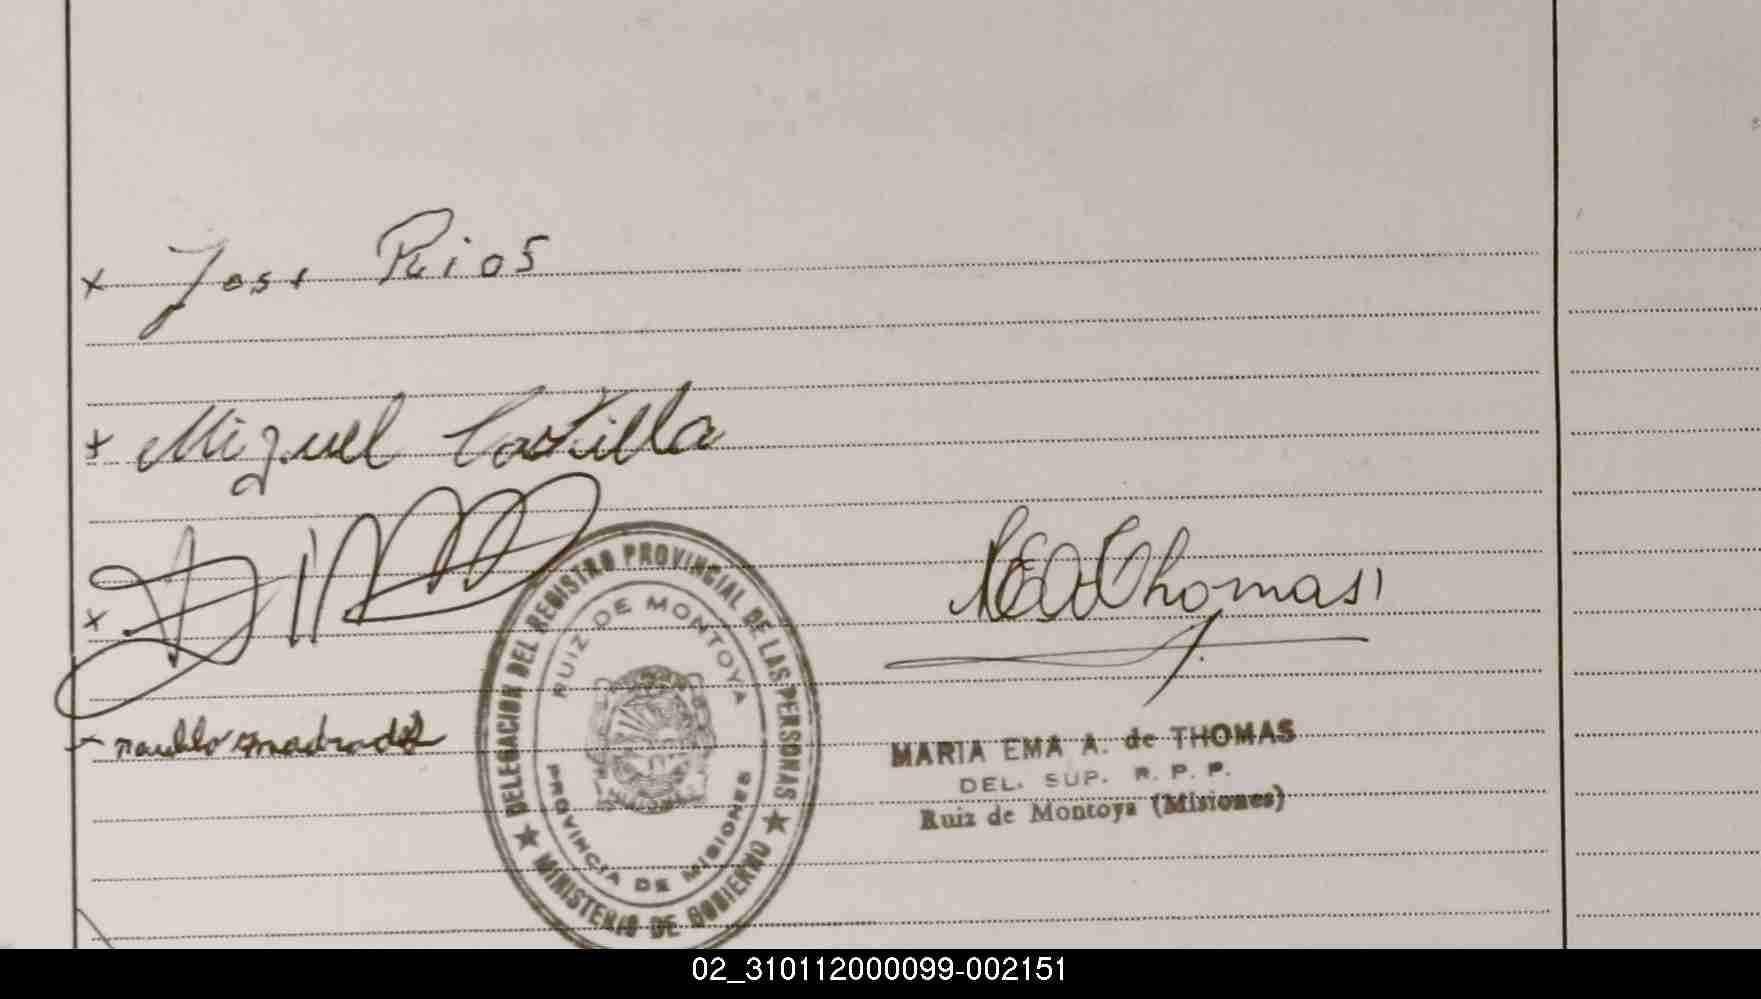 x José Rios
x Miguel Castilla
x
DELEGACION DEL REGISTRO PROVINCIAL DE LAS PERSONAS
RUIZ DE MONTOYA
PROVINCIA DE MISIONES
★ MINISTERIO DE GOBIERNO ★
MEA Thomas
MARIA EMA A. de THOMAS
DEL. SUP. R. P. P.
Ruiz de Montoya (Misiones)
02_310112000099-002151